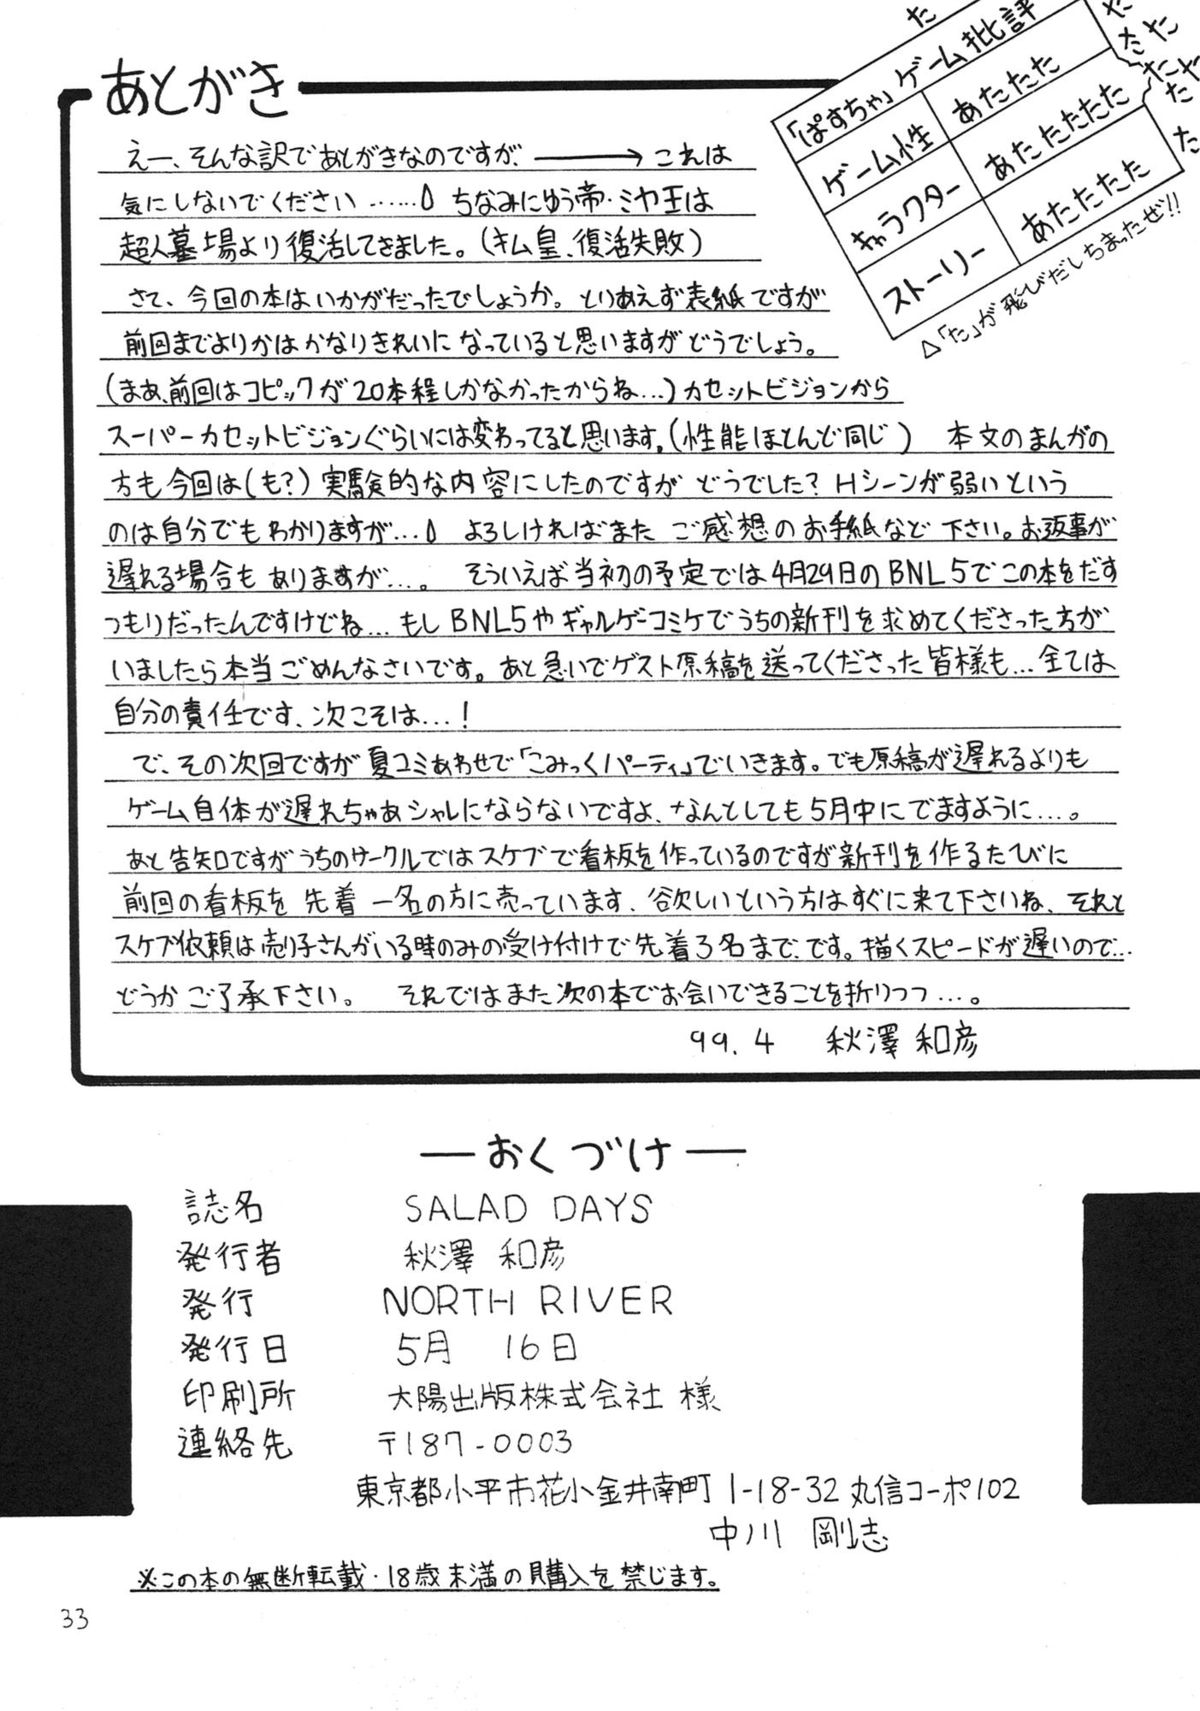 あとがき
えー、そんな訳であとがきなのですが ───→ これは
気にしないでください……。ちなみにゆう帝・ミヤ王は
超人墓場より復活してきました。(キム皇、復活失敗)
さて、今回の本はいかがだったでしょうか。とりあえず表紙ですが
前回までよりかはかなりきれいになっていると思いますがどうでしょう。
(まあ、前回はコピックが20本程しかなかったからね…)カセットビジョンから
スーパーカセットビジョンぐらいには変わってると思います。(性能ほとんど同じ) 本文のまんがの
方も今回は(も?)実験的な内容にしたのですが どうでした? Hシーンが弱いという
のは自分でもわかりますが…。 よろしければまた ご感想のお手紙など下さい。お返事が
遅れる場合もありますが…。 そういえば当初の予定では4月29日のBNL5でこの本をだす
つもりだったんですけどね…もしBNL5やギャルゲーコミケでうちの新刊を求めてくださった方が
いましたら本当ごめんなさいです。あと急いでゲスト原稿を送ってくださった皆様も…全ては
自分の責任です、次こそは…!
で、その次回ですが夏コミあわせで「こみっくパーティ」でいきます。でも原稿が遅れるよりも
ゲーム自体が遅れちゃあシャレにならないですよ、なんとしても5月中にでますように…。
あと告知ですがうちのサークルではスケブで看板を作っているのですが新刊を作るたびに
前回の看板を 先着 一名の方に売っています、欲しいという方はすぐに来て下さいね、それと
スケブ依頼は売り子さんがいる時のみの受け付けで先着3名まで、です。描くスピードが遅いので…
どうかご了承下さい。 それではまた次の本でお会いできることを祈りつつ…。
99.4 秋澤 和彦
「ぱすちゃ」ゲーム批評
ゲーム性 あたたた
キャラクター あたたたた
ストーリー あたたたた
た
た
た
た
た
た
た
た
た
△「た」が飛びだしちまったぜ!!
─おくづけ─
誌名 SALAD DAYS
発行者 秋澤 和彦
発行 NORTH RIVER
発行日 5月 16日
印刷所 大陽出版株式会社 様
連絡先 〒187-0003
東京都小平市花小金井南町 1-18-32 丸信コーポ102
中川 剛志
※この本の無断転載・18歳未満の購入を禁じます。
33